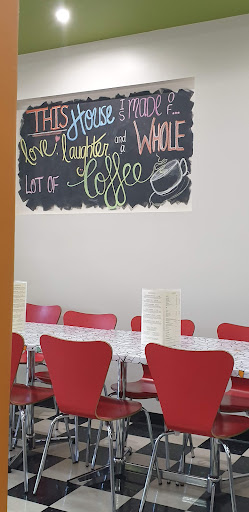 THIS House IS MADE OF...
love, laughter and a WHOLE
LOT OF Coffee